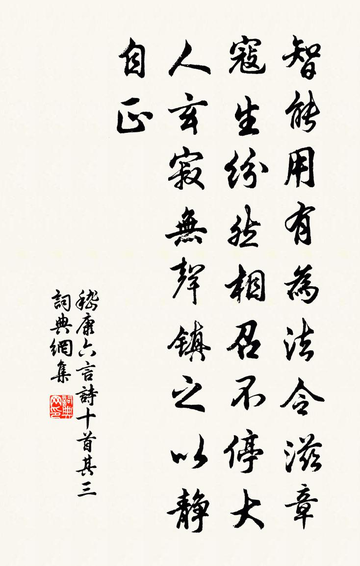 智能用有為法令滋章
寇生紛然相召不停大
人玄寂無聲鎮之以静
自正
嵇康六言詩十首其三
詞典網集